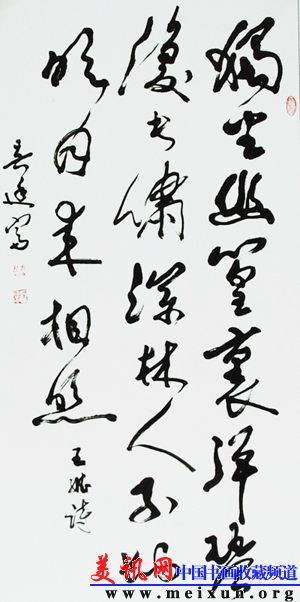 獨坐幽篁裏彈琴
復長嘯深林人不知
明月來相照
王維詩
美讯网
中国书画收藏频道
www.meixun.org